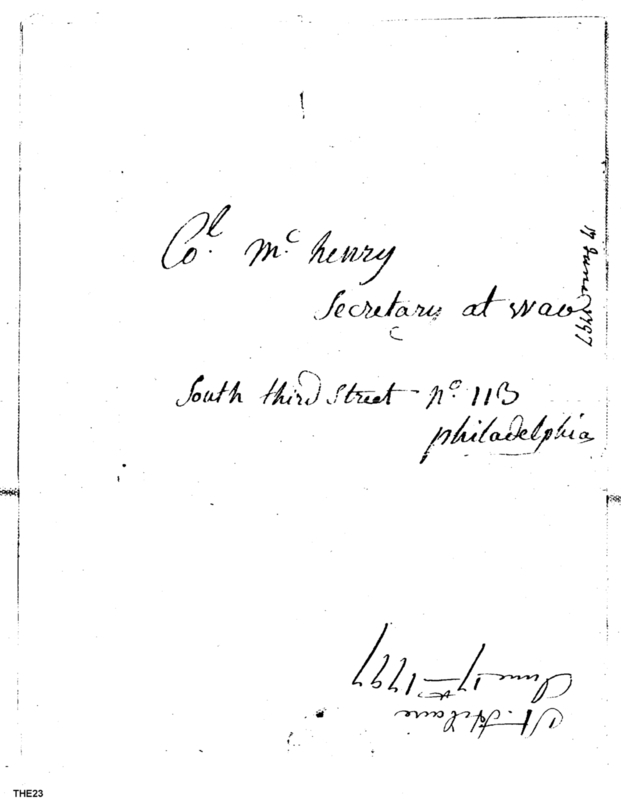 Col. Mc henry
Secretary at war
South third Street - No. 113
philadelphia
17 June 1797
St. Hilaire
June 17th 1797
THE23